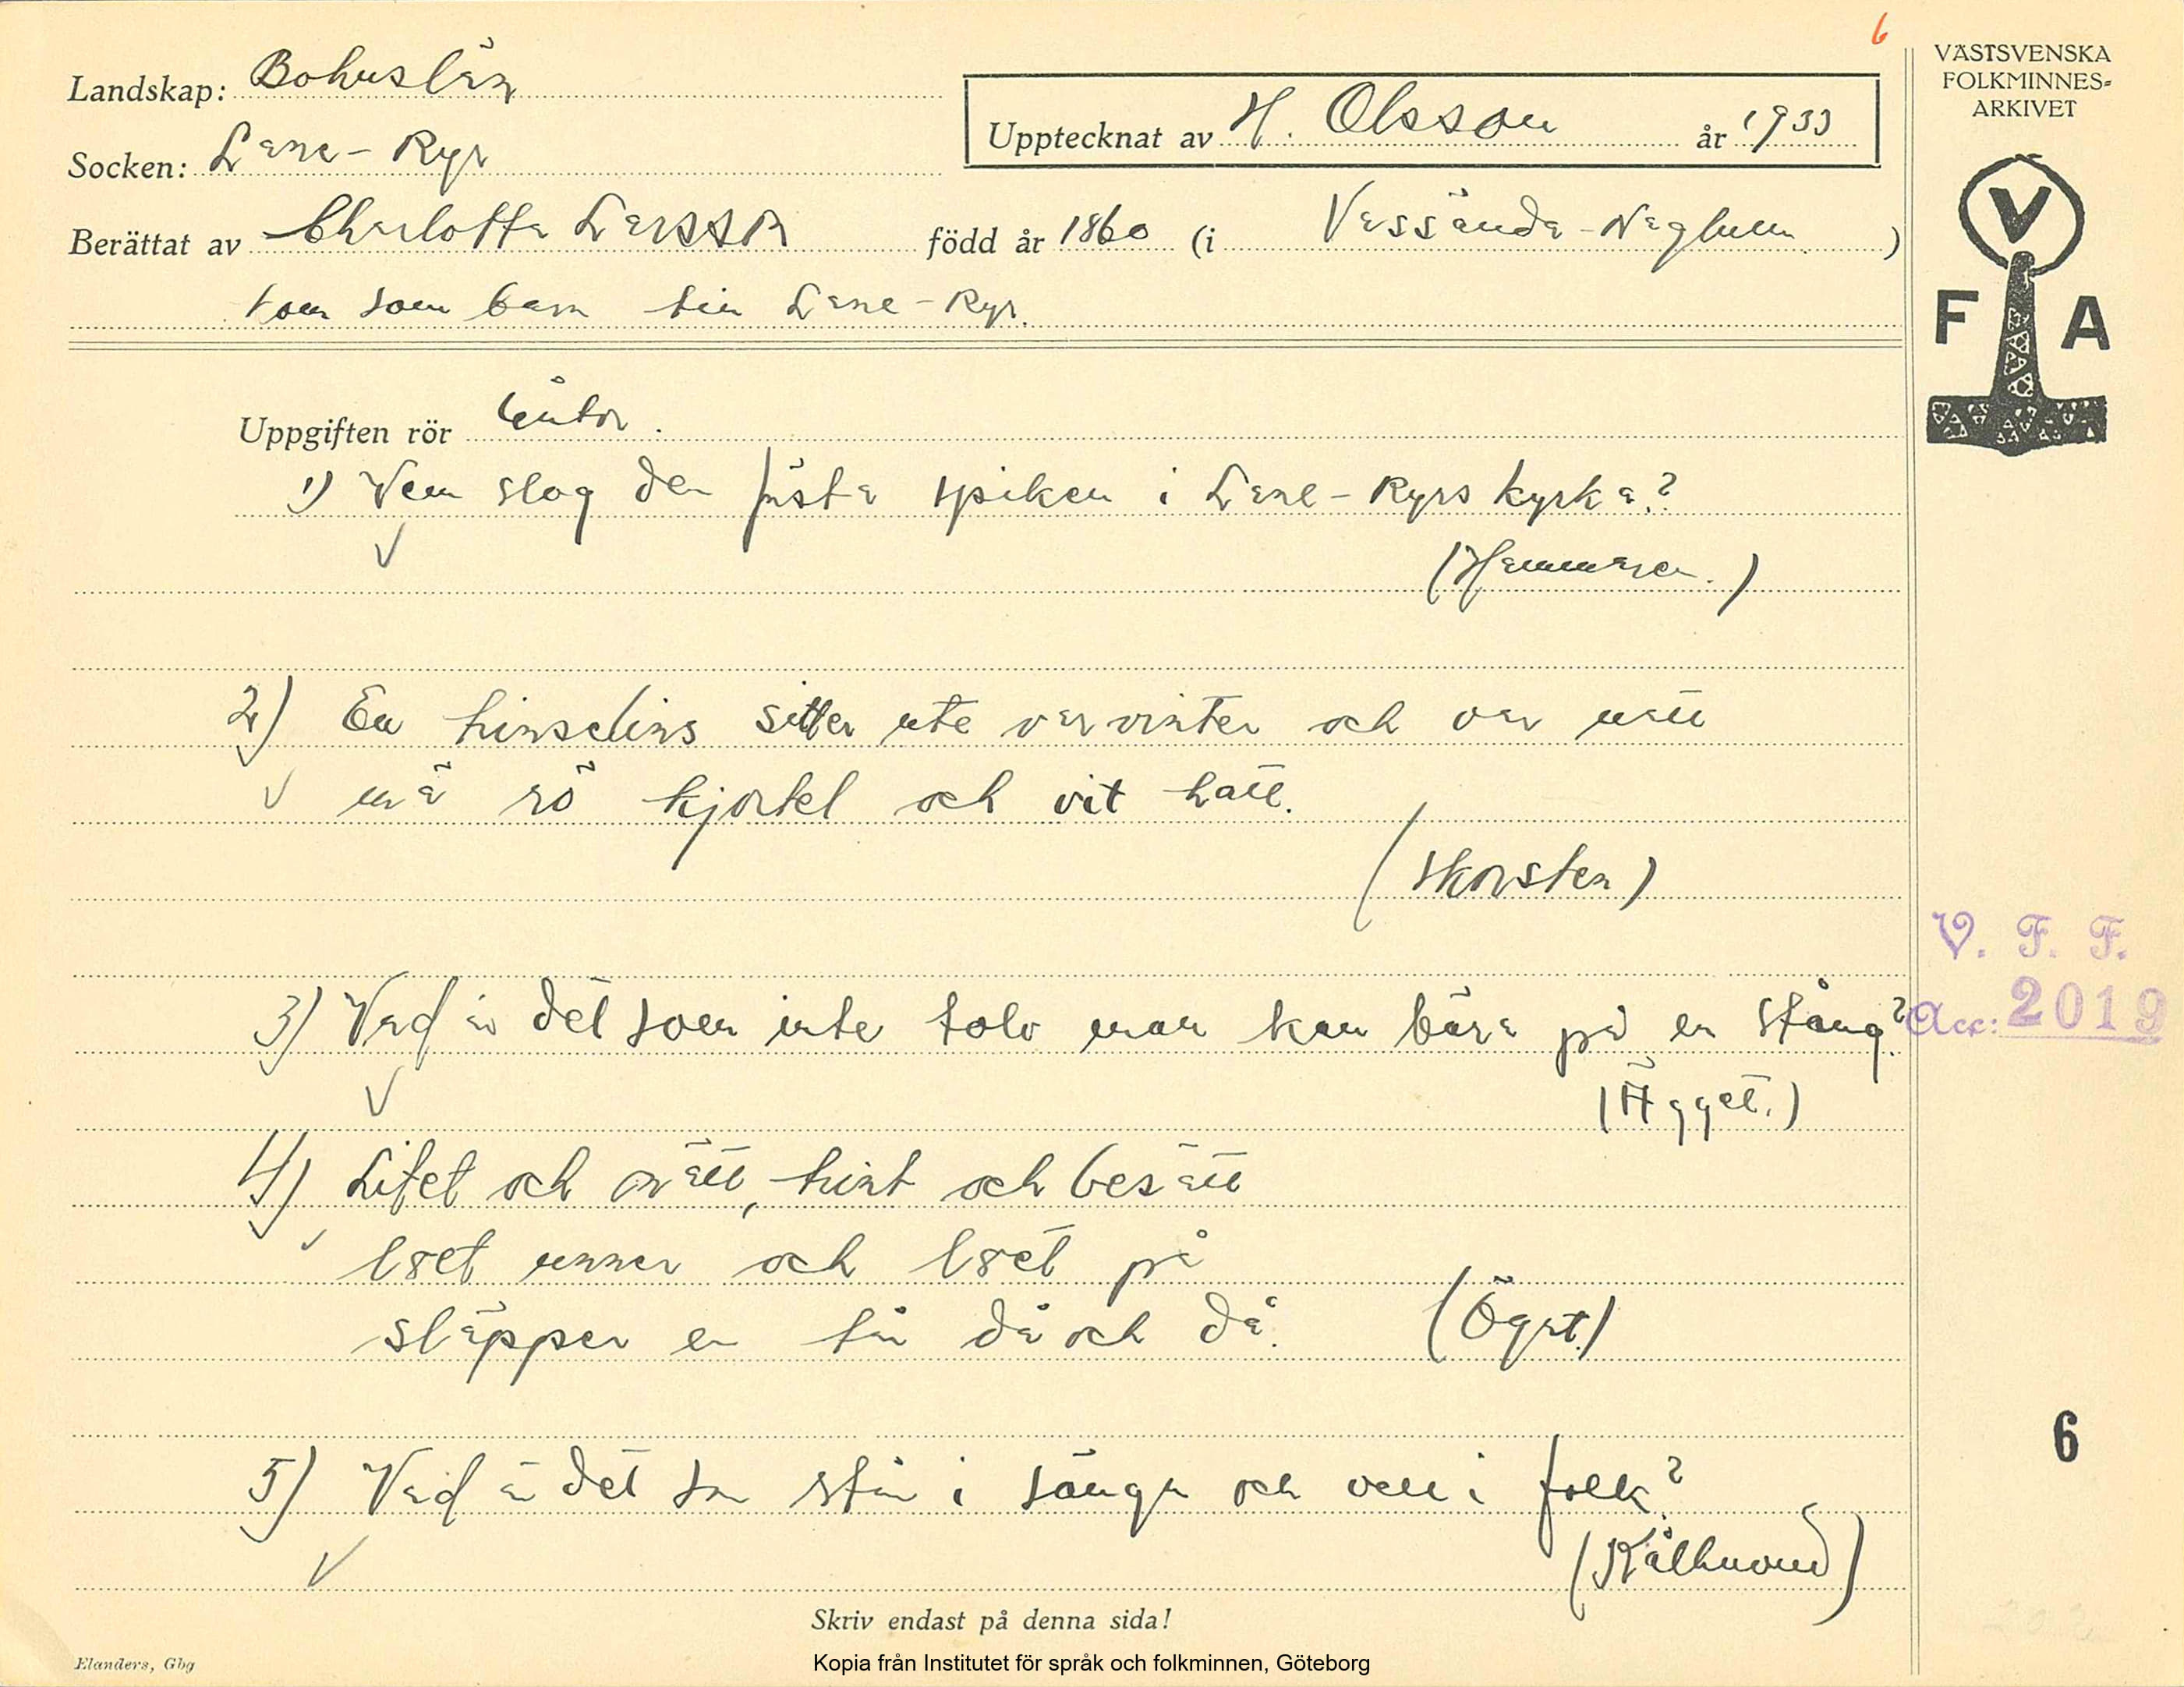 6
VÄSTSVENSKA
FOLKMINNES=
ARKIVET
V
F A
Landskap: Bohuslän
Upptecknat av H. Olsson år 1933
Socken: Lane-Ryr
Berättat av Charlotta Larsson född år 1860 (i Vassända-Naglum)
kom som barn till Lane-Ryr.
Uppgiften rör Gåtor.
1) Vem slog den första spiken i Lane-Ryrs kyrka?
(Hammaren.)
2) En sitter ute var vinter och var natt
mä rö kjortel och vit hatt.
(Skorsten)
3) Vad är det som inte tolv man kan bära på en stång?
(Ägget.)
4) Litet och nätt, runt och besatt
löset unner och löset på
släpper en tår då och då. (Ögat.)
5) Vad är det som står i sänga och vall i folk?
(Kålhuvud)
V. F. F.
Acc: 2019
6
Skriv endast på denna sida!
Elanders, Gbg
Kopia från Institutet för språk och folkminnen, Göteborg